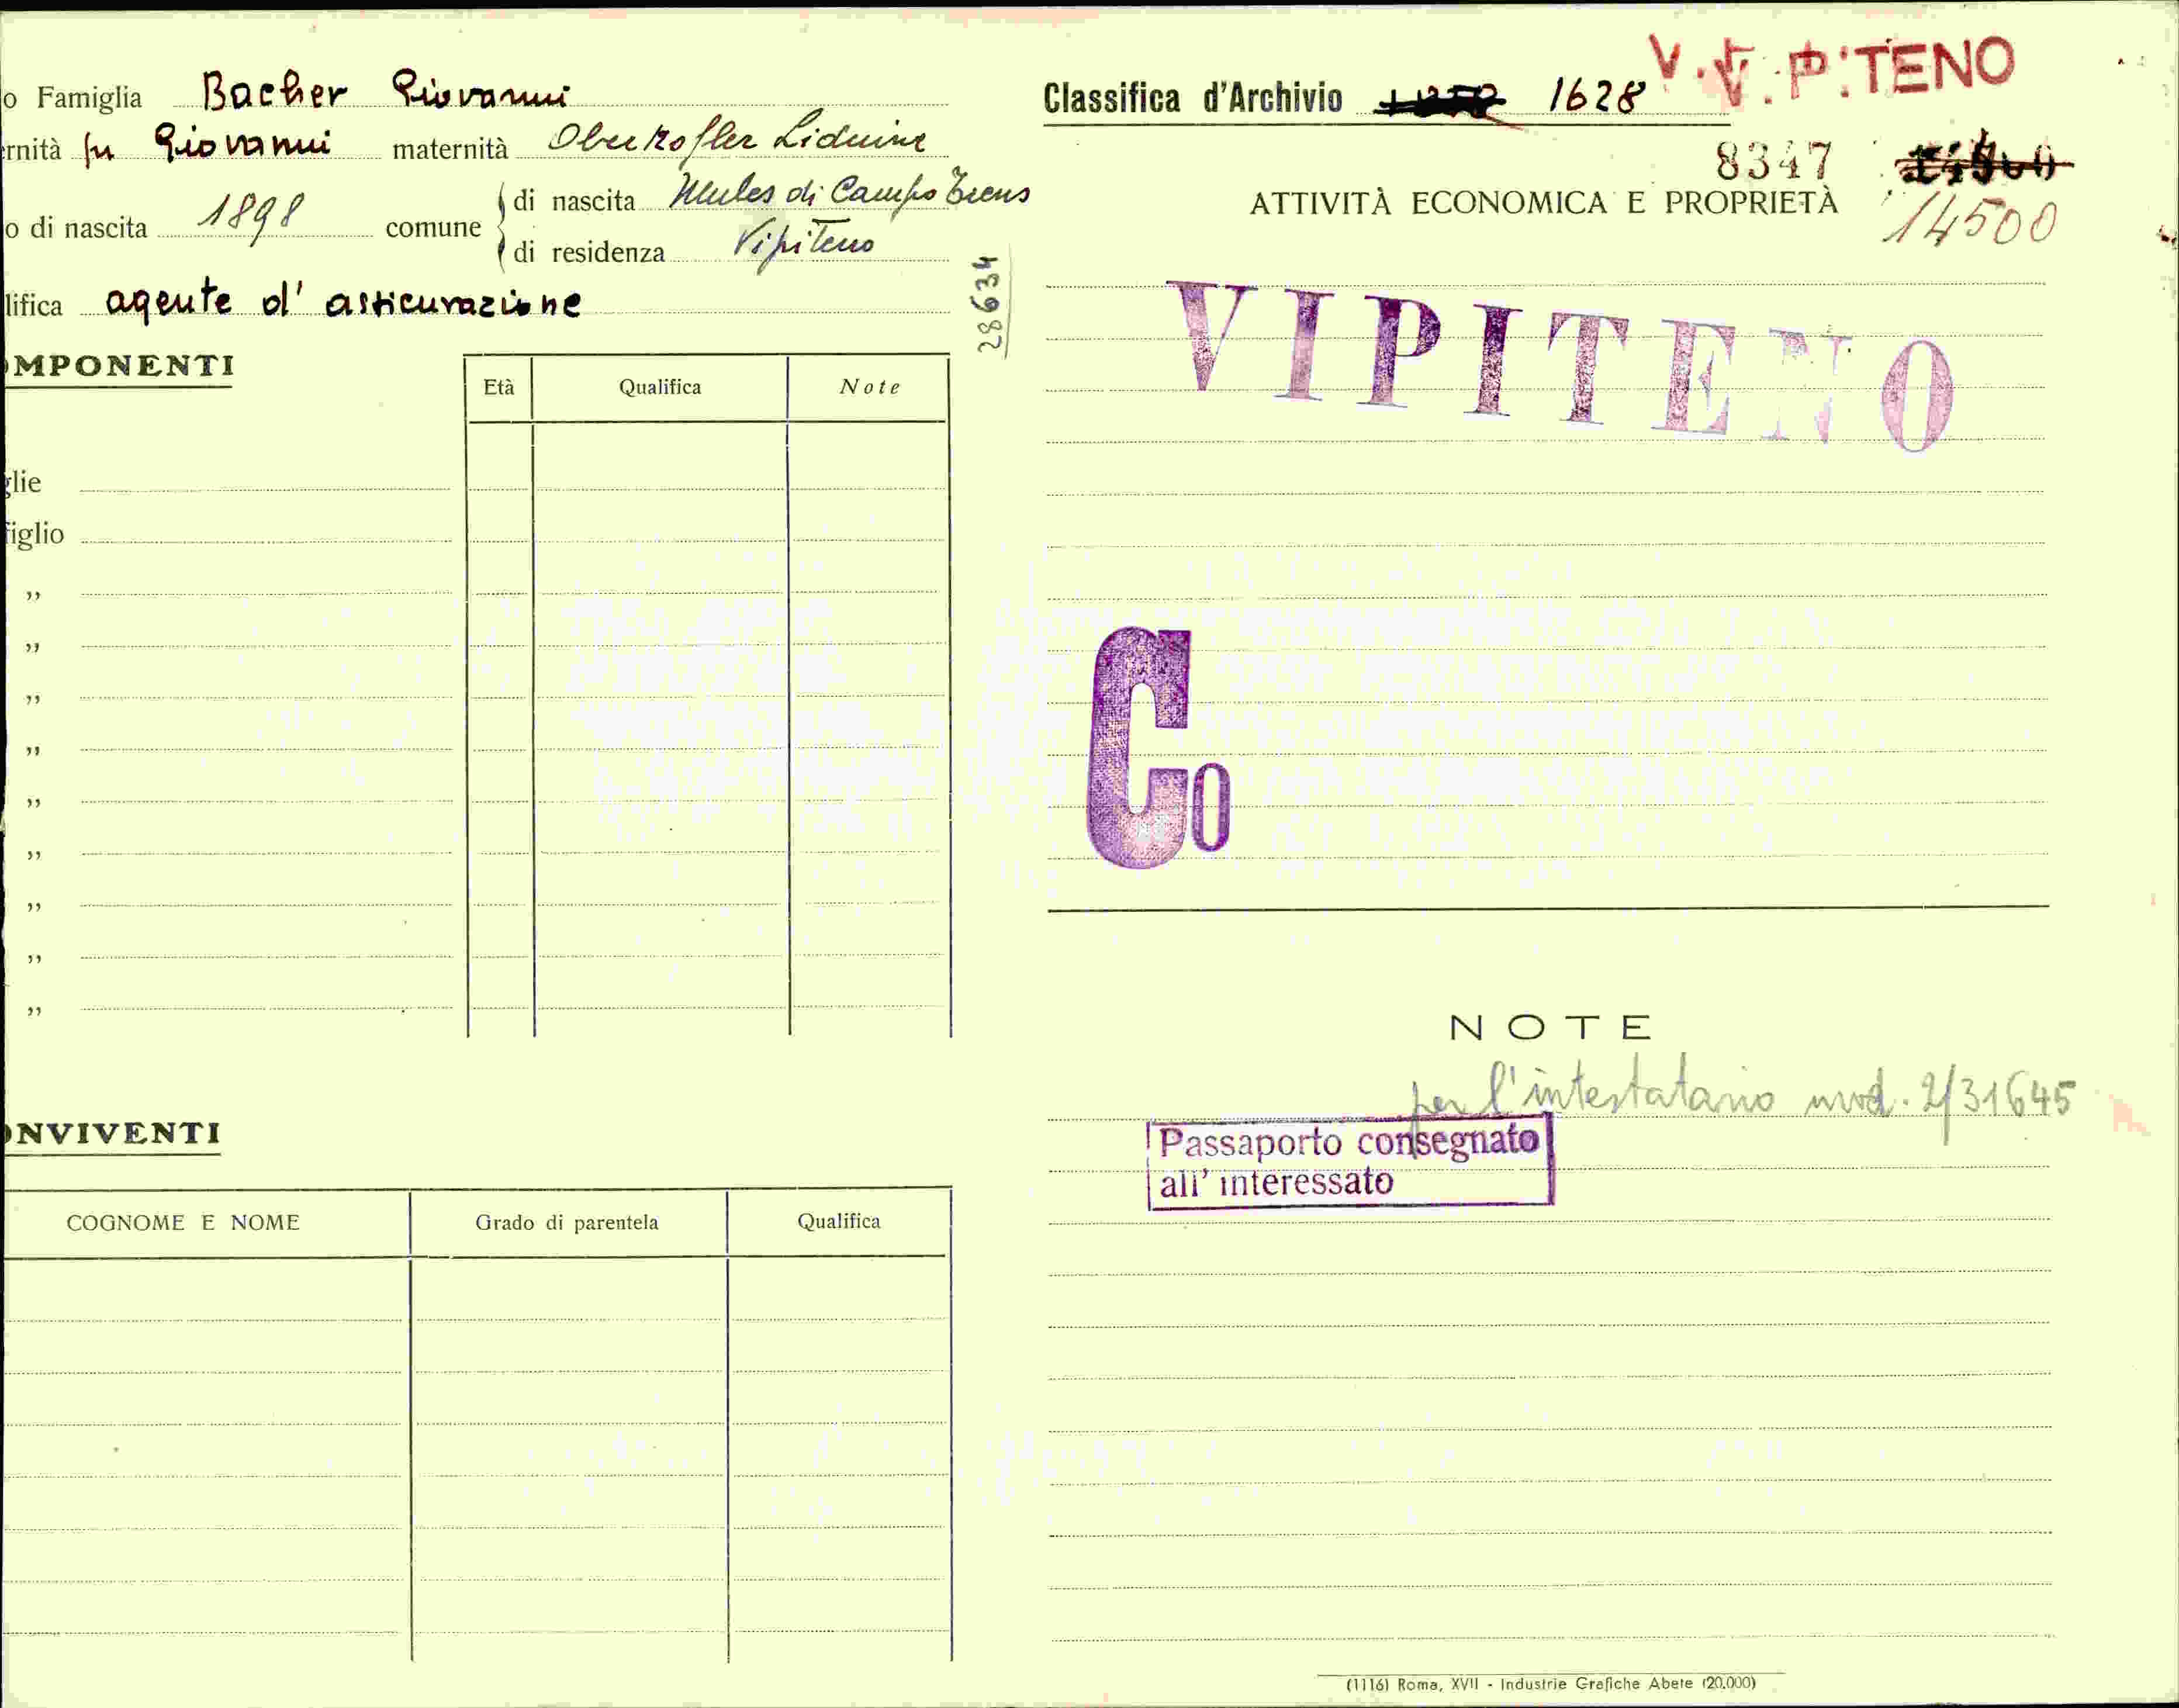 o Famiglia Bacher Giovanni
rnità fu Giovanni maternità Oberkofler Liduine
o di nascita 1898 comune di nascita Mules di Campo Trens
di residenza Vipiteno
lifica agente d' assicurazione
28634
OMPONENTI
Età Qualifica Note
glie
figlio
”
”
”
”
”
”
”
”
”
ONVIVENTI
COGNOME E NOME Grado di parentela Qualifica
Classifica d'Archivio 1628 V. V. P:TENO
8347
ATTIVITÀ ECONOMICA E PROPRIETÀ 14500
VIPITENO
Co
NOTE
per l'intestatario mod. 2/31645
Passaporto consegnato
all' interessato
(1116) Roma, XVII - Industrie Grafiche Abete (20.000)